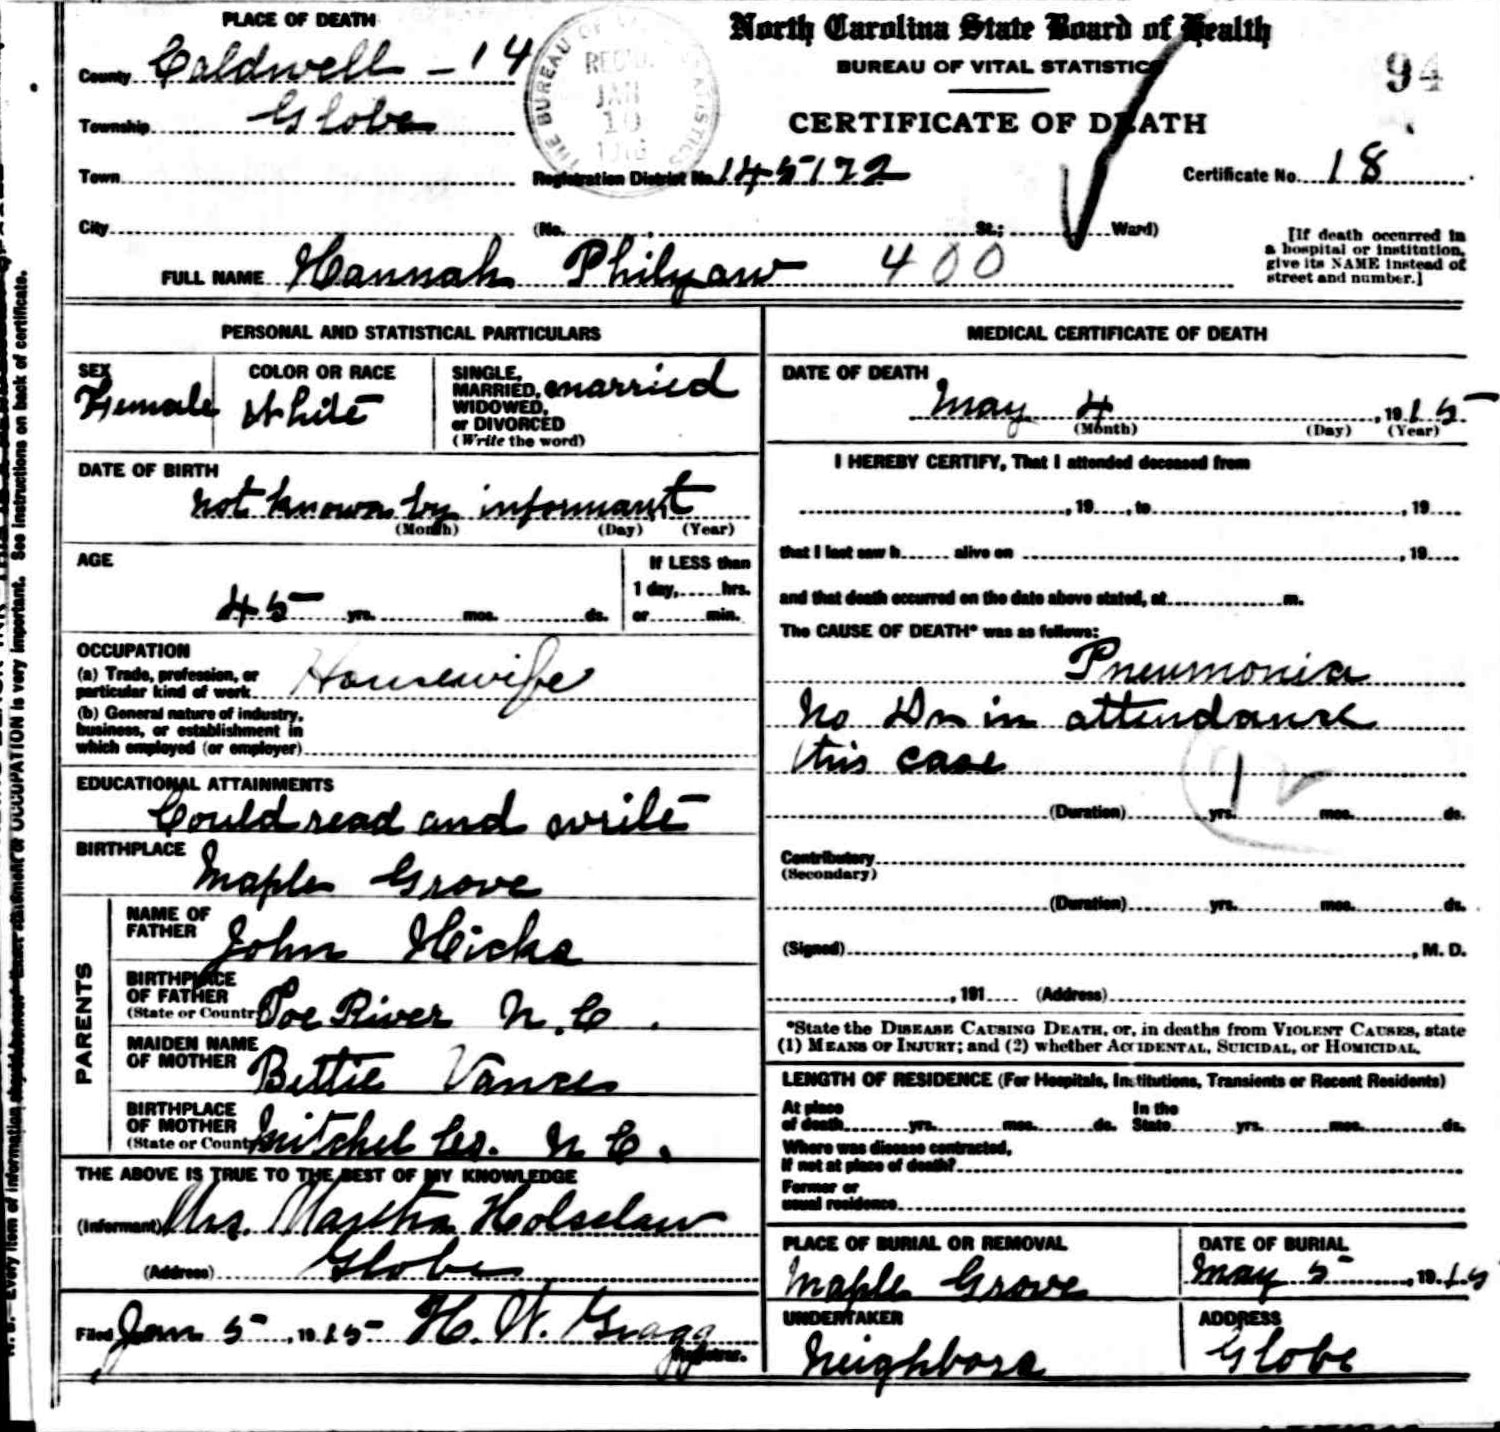 PLACE OF DEATH
North Carolina State Board of Health
BUREAU OF VITAL STATISTICS
CERTIFICATE OF DEATH
94
County Caldwell - 14
Township Globe
THE BUREAU OF
JAN
10
Town
Registration District No. 145172
Certificate No. 18
City
(No. , St.; Ward)
[If death occurred in
a hospital or institution,
give its NAME instead of
street and number.]
FULL NAME Hannah Philyaw 400
PERSONAL AND STATISTICAL PARTICULARS
SEX
Female
COLOR OR RACE
White
SINGLE,
MARRIED, married
WIDOWED,
or DIVORCED
(Write the word)
DATE OF BIRTH
not known by informant
(Month) (Day) (Year)
AGE
45 yrs. mos. ds.
If LESS than
1 day, hrs.
or min.
OCCUPATION
(a) Trade, profession, or
particular kind of work Housewife
(b) General nature of industry,
business, or establishment in
which employed (or employer)
EDUCATIONAL ATTAINMENTS
Could read and write
BIRTHPLACE
Maple Grove
PARENTS
NAME OF
FATHER John Hicks
BIRTHPLACE
OF FATHER
(State or Country) Toe River N.C.
MAIDEN NAME
OF MOTHER Bettie Vance
BIRTHPLACE
OF MOTHER
(State or Country) Mitchel Co. N C.
THE ABOVE IS TRUE TO THE BEST OF MY KNOWLEDGE
(Informant) Mrs. Martha Holsclaw
(Address) Globe
Filed Jan 5, 1915 H. W. Gragg
Registrar.
MEDICAL CERTIFICATE OF DEATH
DATE OF DEATH
May 4, 1915
(Month) (Day) (Year)
I HEREBY CERTIFY, That I attended deceased from
, 19 , to , 19
that I last saw h alive on , 19
and that death occurred on the date above stated, at m.
The CAUSE OF DEATH* was as follows:
Pneumonia
No Dr in attendance
this case
(Duration) yrs. mos. ds.
Contributory
(Secondary)
(Duration) yrs. mos. ds.
(Signed) , M. D.
, 191 (Address)
*State the DISEASE CAUSING DEATH, or, in deaths from VIOLENT CAUSES, state
(1) MEANS OF INJURY; and (2) whether ACCIDENTAL, SUICIDAL, or HOMICIDAL.
LENGTH OF RESIDENCE (For Hospitals, Institutions, Transients or Recent Residents)
At place
of death yrs. mos. ds.
In the
State yrs. mos. ds.
Where was disease contracted,
if not at place of death?
Former or
usual residence
PLACE OF BURIAL OR REMOVAL
Maple Grove
DATE OF BURIAL
May 5, 1915
UNDERTAKER
Neighbors
ADDRESS
Globe
N. B.—Every item of information
OCCUPATION is very important. See instructions on back of certificate.